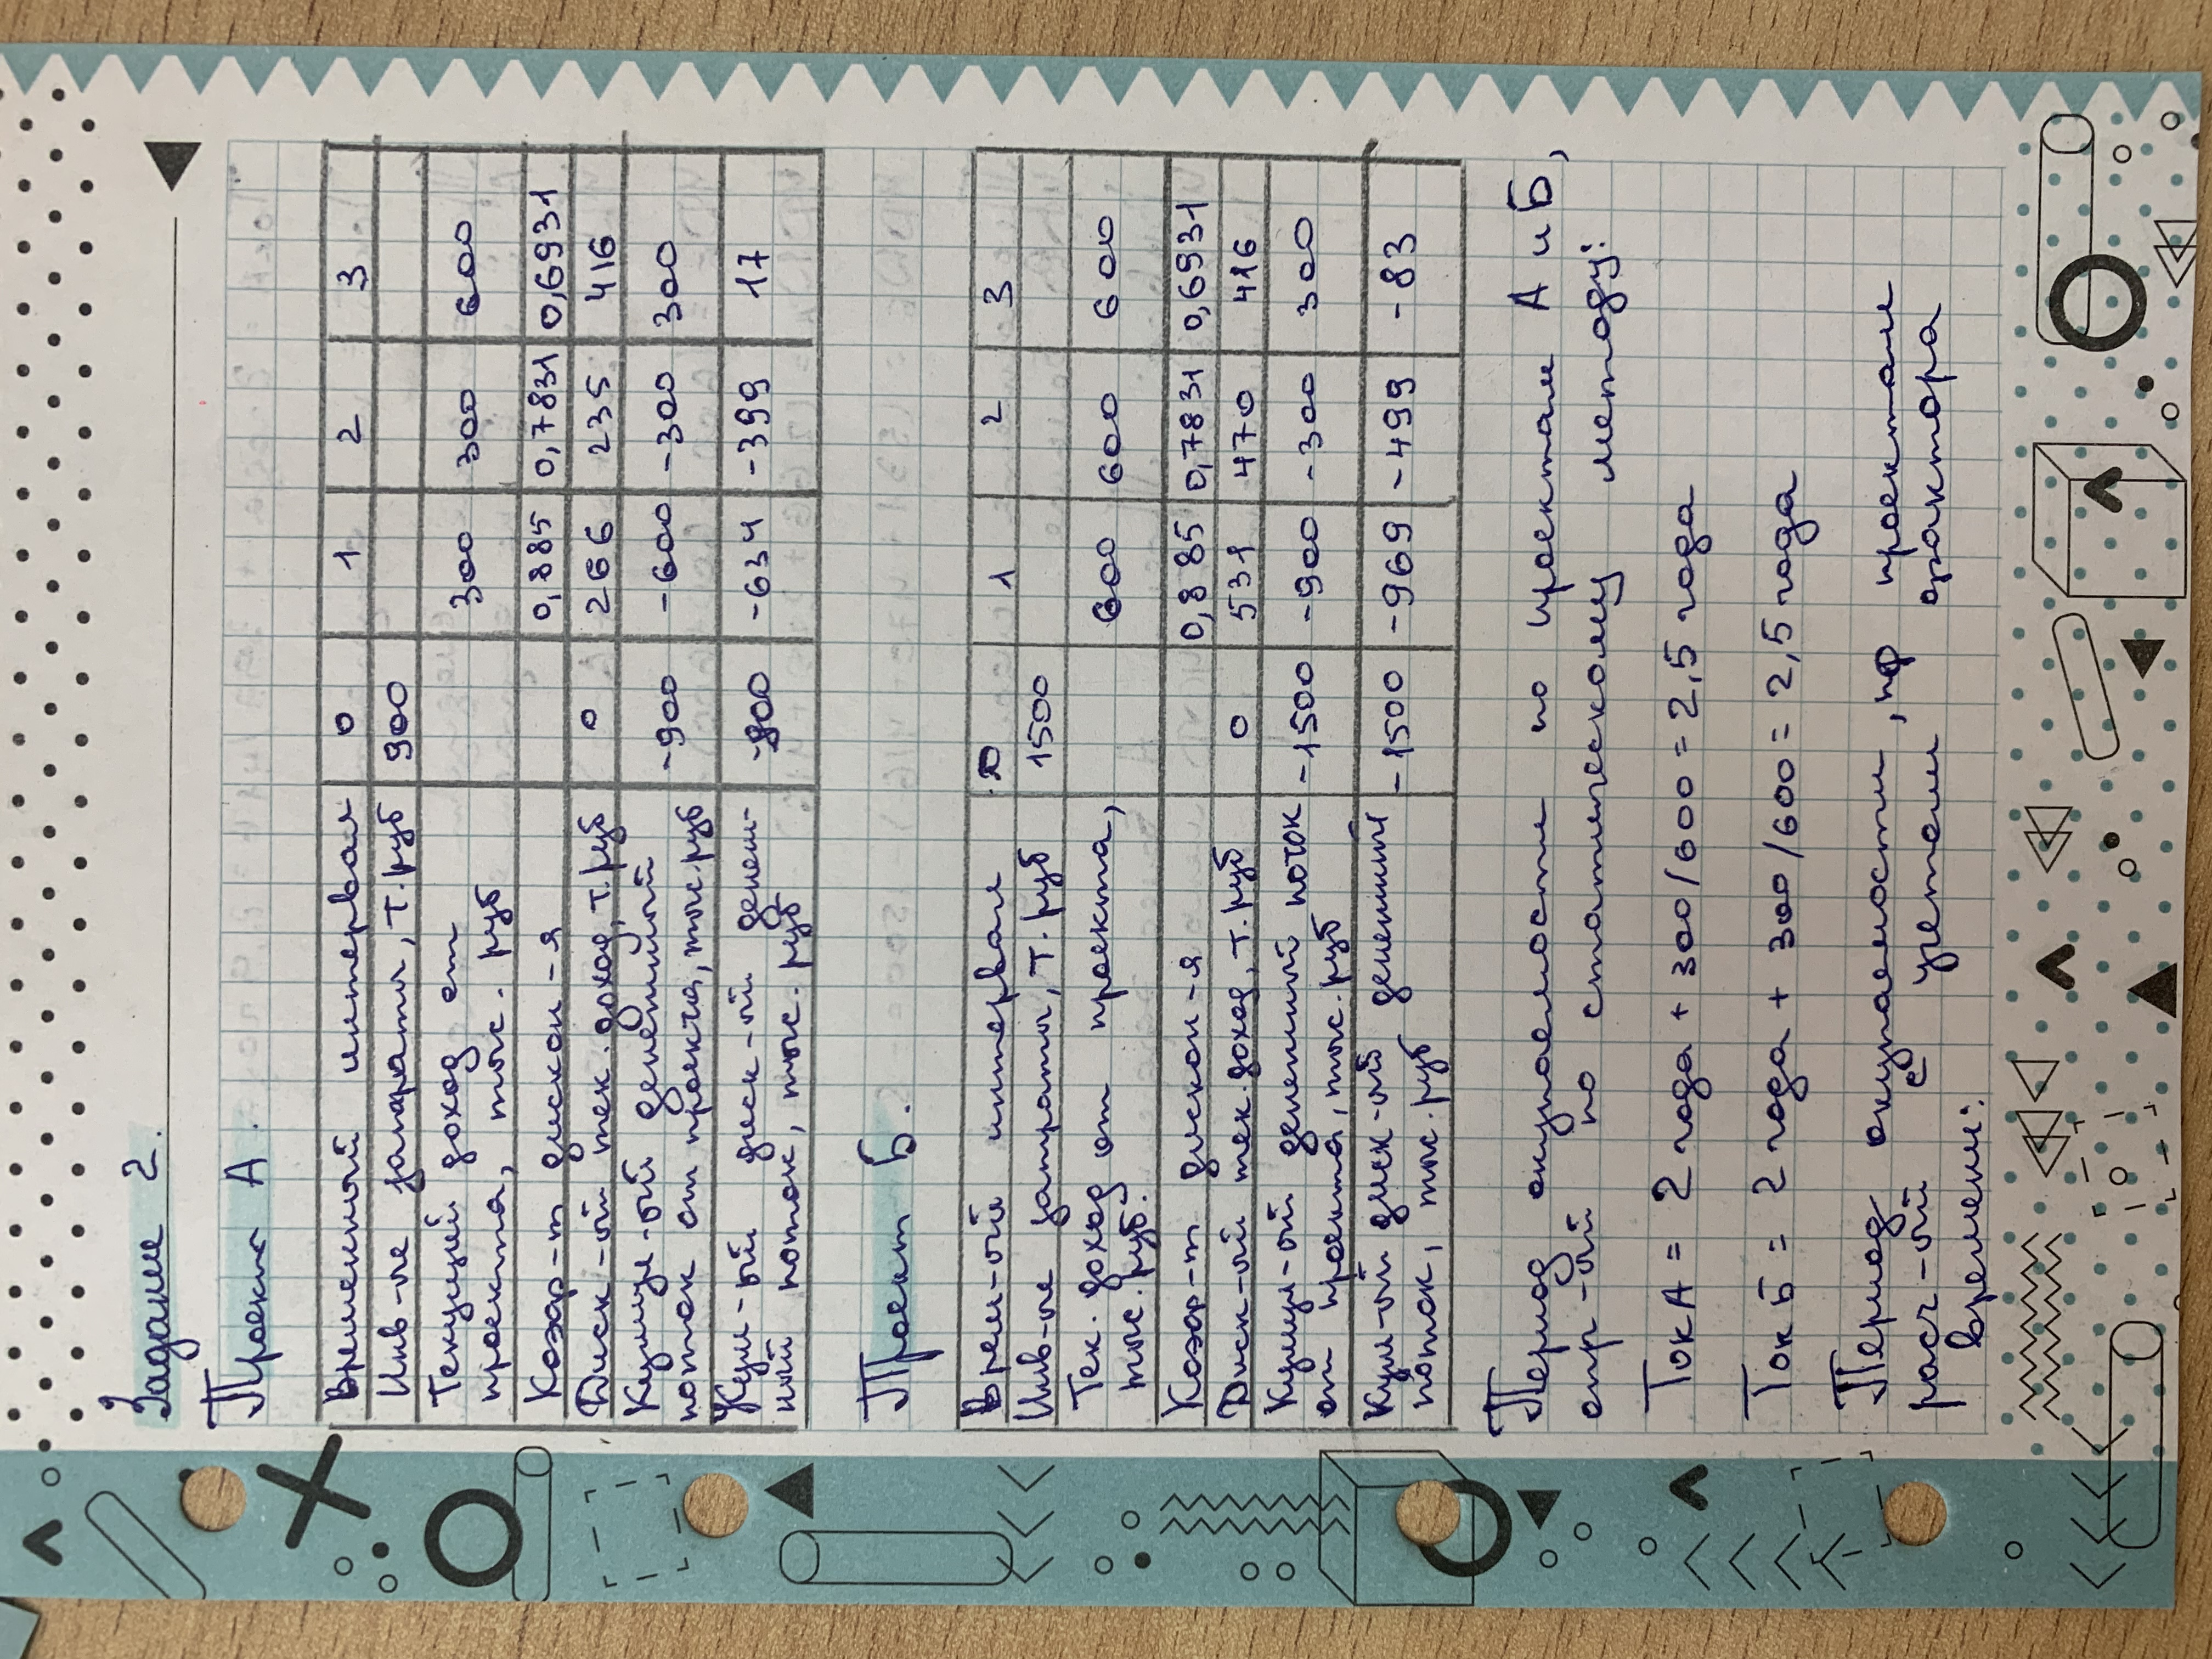 Задание 2.
Проект А.
Временный интервал 0 1 2 3
Инв-ые затраты, т.руб 900
Текущий доход от 300 300 600
проекта, тыс. руб
Коэф-т дискон-я 0,885 0,7831 0,6931
Диск-ый тек. доход, т.руб 0 266 235 416
Кумул-ый денежный -900 -600 -300 300
поток от проекта, тыс.руб
Кум-ый диск-ый денеж- -900 -634 -399 17
ный поток, тыс. руб
Проект Б.
Врем-ый интервал 0 1 2 3
Инв-ые затраты, т.руб 1500
Тек. доход от проекта, 600 600 600
тыс. руб.
Коэф-т дискон-я 0,885 0,7831 0,6931
Диск-ый тек. доход, т.руб 0 531 470 416
Кумул-ый денежный поток -1500 -900 -300 300
от проекта, тыс.руб
Кум-ый диск-ый денежный -1500 -969 -499 -83
поток, тыс. руб
Период окупаемости по проектам А и Б,
опр-ый по статическому методу:
Ток А = 2 года + 300/600 = 2,5 года
Ток Б = 2 года + 300/600 = 2,5 года
Период окупаемости, по проектам
расч-ый с учетом фактора
времени: